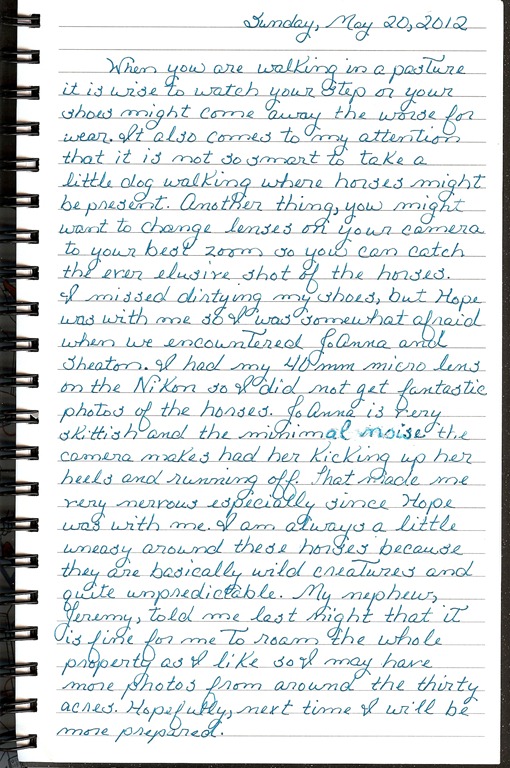 Sunday, May 20, 2012
When you are walking in a pasture
it is wise to watch your step or your
shoes might come away the worse for
wear. It also comes to my attention
that it is not so smart to take a
little dog walking where horses might
be present. Another thing, you might
want to change lenses on your camera
to your best zoom so you can catch
the ever elusive shot of the horses.
I missed dirtying my shoes, but Hope
was with me so I was somewhat afraid
when we encountered JoAnna and
Sheaton. I had my 40 mm micro lens
on the Nikon so I did not get fantastic
photos of the horses. JoAnna is very
skittish and the minimal noise the
camera makes had her kicking up her
heels and running off. That made me
very nervous especially since Hope
was with me. I am always a little
uneasy around these horses because
they are basically wild creatures and
quite unpredictable. My nephew,
Jeremy, told me last night that it
is fine for me to roam the whole
property as I like so I may have
more photos from around the thirty
acres. Hopefully, next time I will be
more prepared.